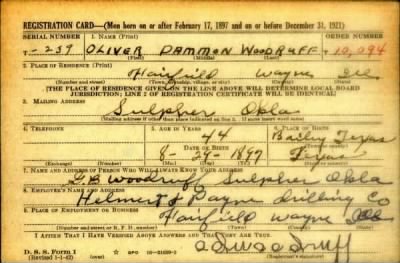 REGISTRATION CARD—(Men born on or after February 17, 1897 and on or before December 31, 1921)
SERIAL NUMBER 1. NAME (Print) ORDER NUMBER
T-257 OLIVER DAMMON WOODRUFF 10,094
(First) (Middle) (Last)
2. PLACE OF RESIDENCE (Print)
Fairfield Wayne Ill.
(Number and street) (Town, township, village, or city) (County) (State)
(THE PLACE OF RESIDENCE GIVEN ON THE LINE ABOVE WILL DETERMINE LOCAL BOARD
JURISDICTION; LINE 2 OF REGISTRATION CERTIFICATE WILL BE IDENTICAL)
3. MAILING ADDRESS
Sulpher Okla
(Mailing address if other than place indicated on line 2. If same insert word same)
4. TELEPHONE 5. AGE IN YEARS 6. PLACE OF BIRTH
44 Baily Texas
DATE OF BIRTH (Town or county)
8-24-1897 Texas
(Exchange) (Number) (Mo.) (Day) (Yr.) (State or country)
7. NAME AND ADDRESS OF PERSON WHO WILL ALWAYS KNOW YOUR ADDRESS
Woodruff Sulpher Okla
8. EMPLOYER'S NAME AND ADDRESS
Helmert & Payne drilling Co
9. PLACE OF EMPLOYMENT OR BUSINESS
Fairfield Wayne
(Number and street or R. F. D. number) (Town) (County) (State)
I AFFIRM THAT I HAVE VERIFIED ABOVE ANSWERS AND THAT THEY ARE TRUE.
D. S. S. Form 1
(Revised 1-1-42) GPO 16-21630-2